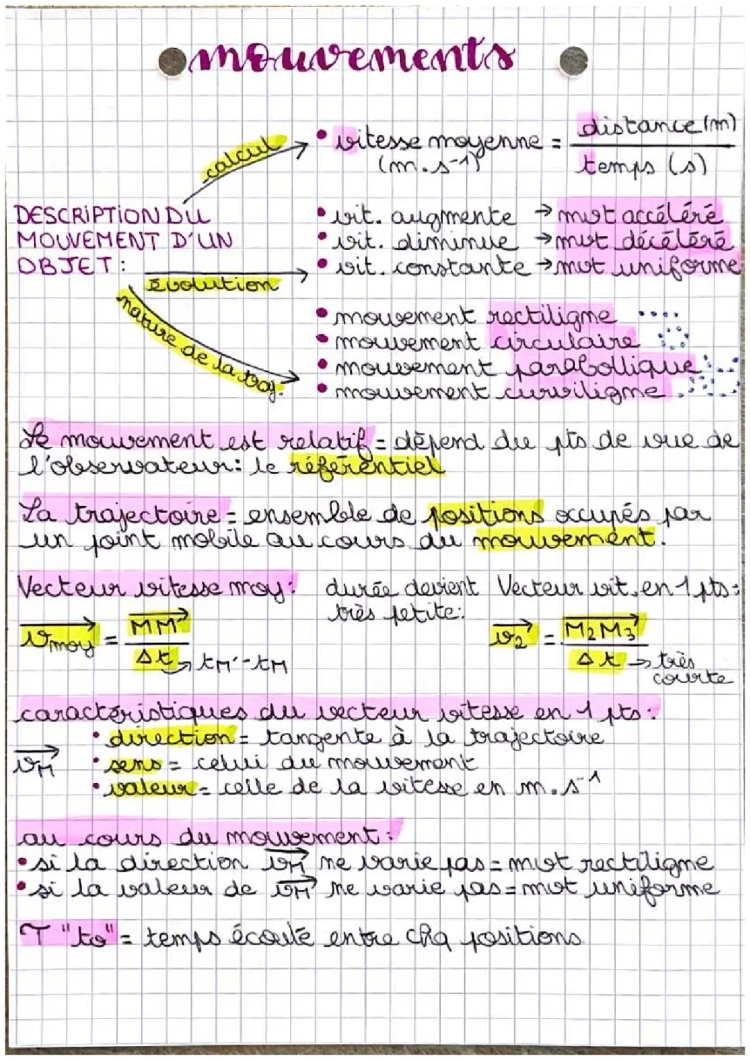 mouvements
calcul
• vitesse moyenne = distance (m) / temps (s)
(m.s-1)
DESCRIPTION DU
MOUVEMENT D'UN
OBJET :
évolution
• vit. augmente → mvt accéléré
• vit. diminue → mvt décéléré
• vit. constante → mvt uniforme
nature de la traj.
• mouvement rectiligne
• mouvement circulaire
• mouvement parabollique
• mouvement curviligne
Le mouvement est relatif = dépend du pts de vue de
l'observateur: le référentiel
La trajectoire = ensemble de positions occupés par
un point mobile au cours du mouvement.
Vecteur vitesse moy: durée devient Vecteur vit. en 1 pts:
très petite:
vmoy = MM' / Δt → tM'-tM
v2 = M2M3 / Δt → très
courte
caractéristiques du vecteur vitesse en 1 pts:
• direction = tangente à la trajectoire
vM • sens = celui du mouvement
• valeur = celle de la vitesse en m.s-1
au cours du mouvement:
• si la direction vM ne varie pas = mvt rectiligne
• si la valeur de vM ne varie pas = mvt uniforme
T "to" = temps écoulé entre chq positions